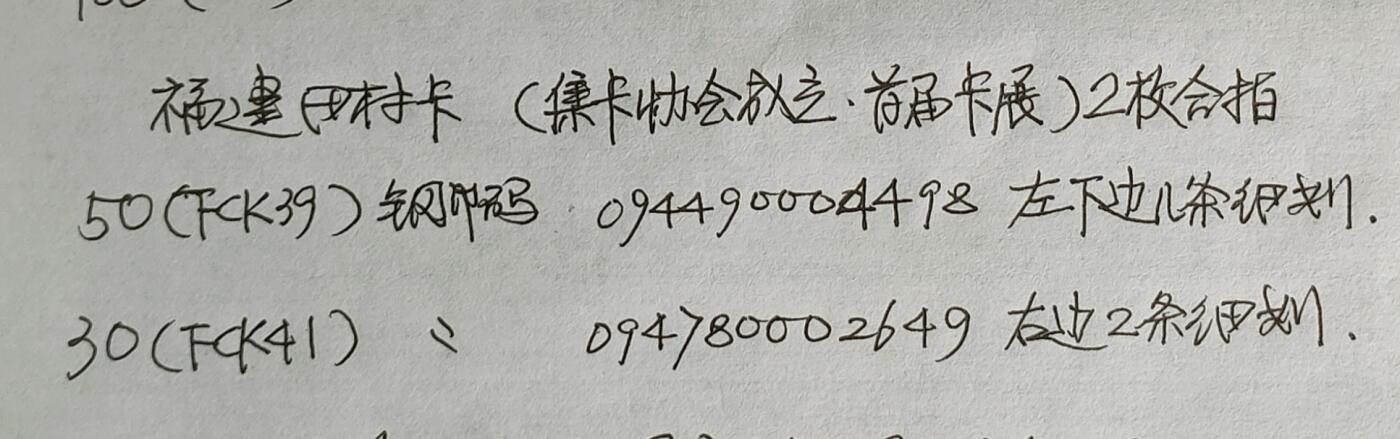 福建田村卡（集卡协会成立·首届卡展）2枚合拍
50(FCK39)钢印码 094490004498 左下边几条细划.
30(FCK41) 〃 094780002649 右边2条细划.